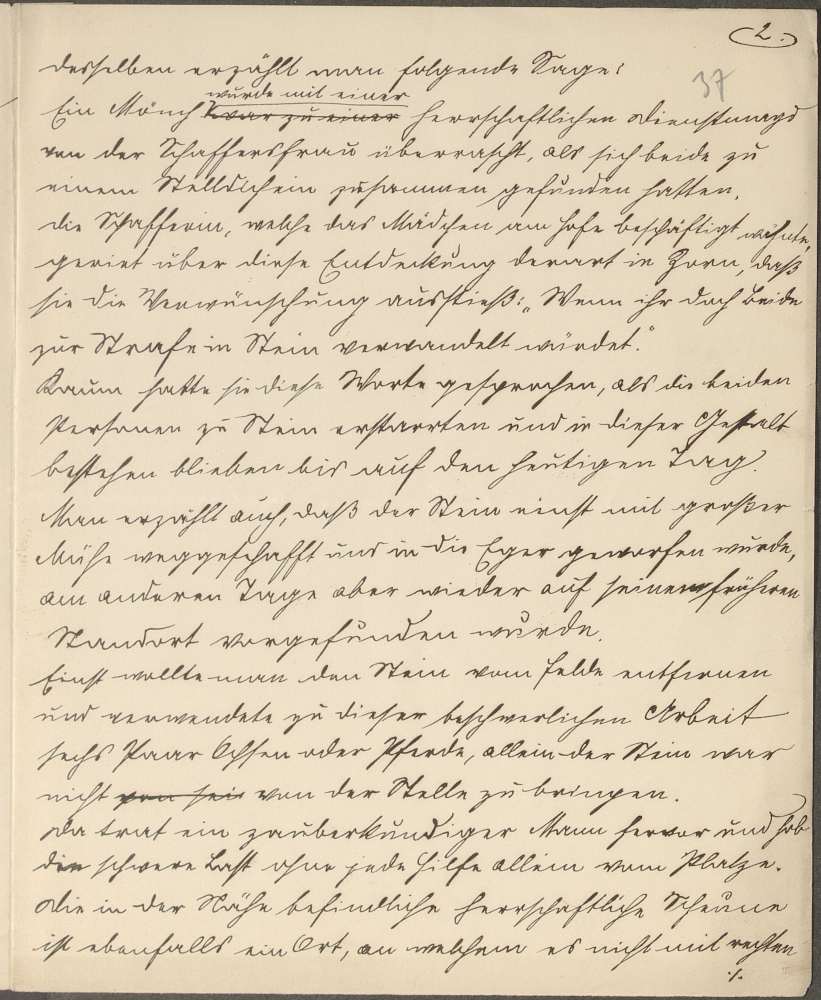 2.
37
desselben erzählt man folgende Sage:
wurde mit einer
Ein Mönch war zu einer herrschaftlichen Dienstmagd
von der Schaffersfrau überrascht, als sich beide zu
einem Stelldichein zusammen gefunden hatten.
Die Schafferin, welche das Mädchen am Hofe beschäftigt wähnte,
geriet über diese Entdeckung derart in Zorn, daß
sie die Verwünschung ausstieß: „Wenn ihr doch beide
zur Strafe in Stein verwandelt würdet."
Kaum hatte sie diese Worte gesprochen, als die beiden
Personen zu Stein erstarrten und in dieser Gestalt
bestehen blieben bis auf den heutigen Tag.
Man erzählt auch, daß der Stein einst mit großer
Mühe weggeschafft und in die Eger geworfen wurde,
am anderen Tage aber wieder auf seinem früheren
Standort vorgefunden wurde.
Einst wollte man den Stein vom Felde entfernen
und verwendete zu dieser beschwerlichen Arbeit
sechs Paar Ochsen oder Pferde, allein der Stein war
nicht von sei von der Stelle zu bringen.
Da trat ein zauberkundiger Mann hervor und hob
die schwere Last ohne jede Hilfe allein vom Platze.
Die in der Nähe befindliche herrschaftliche Scheune
ist ebenfalls ein Ort, an welchem es nicht mit rechten
./.